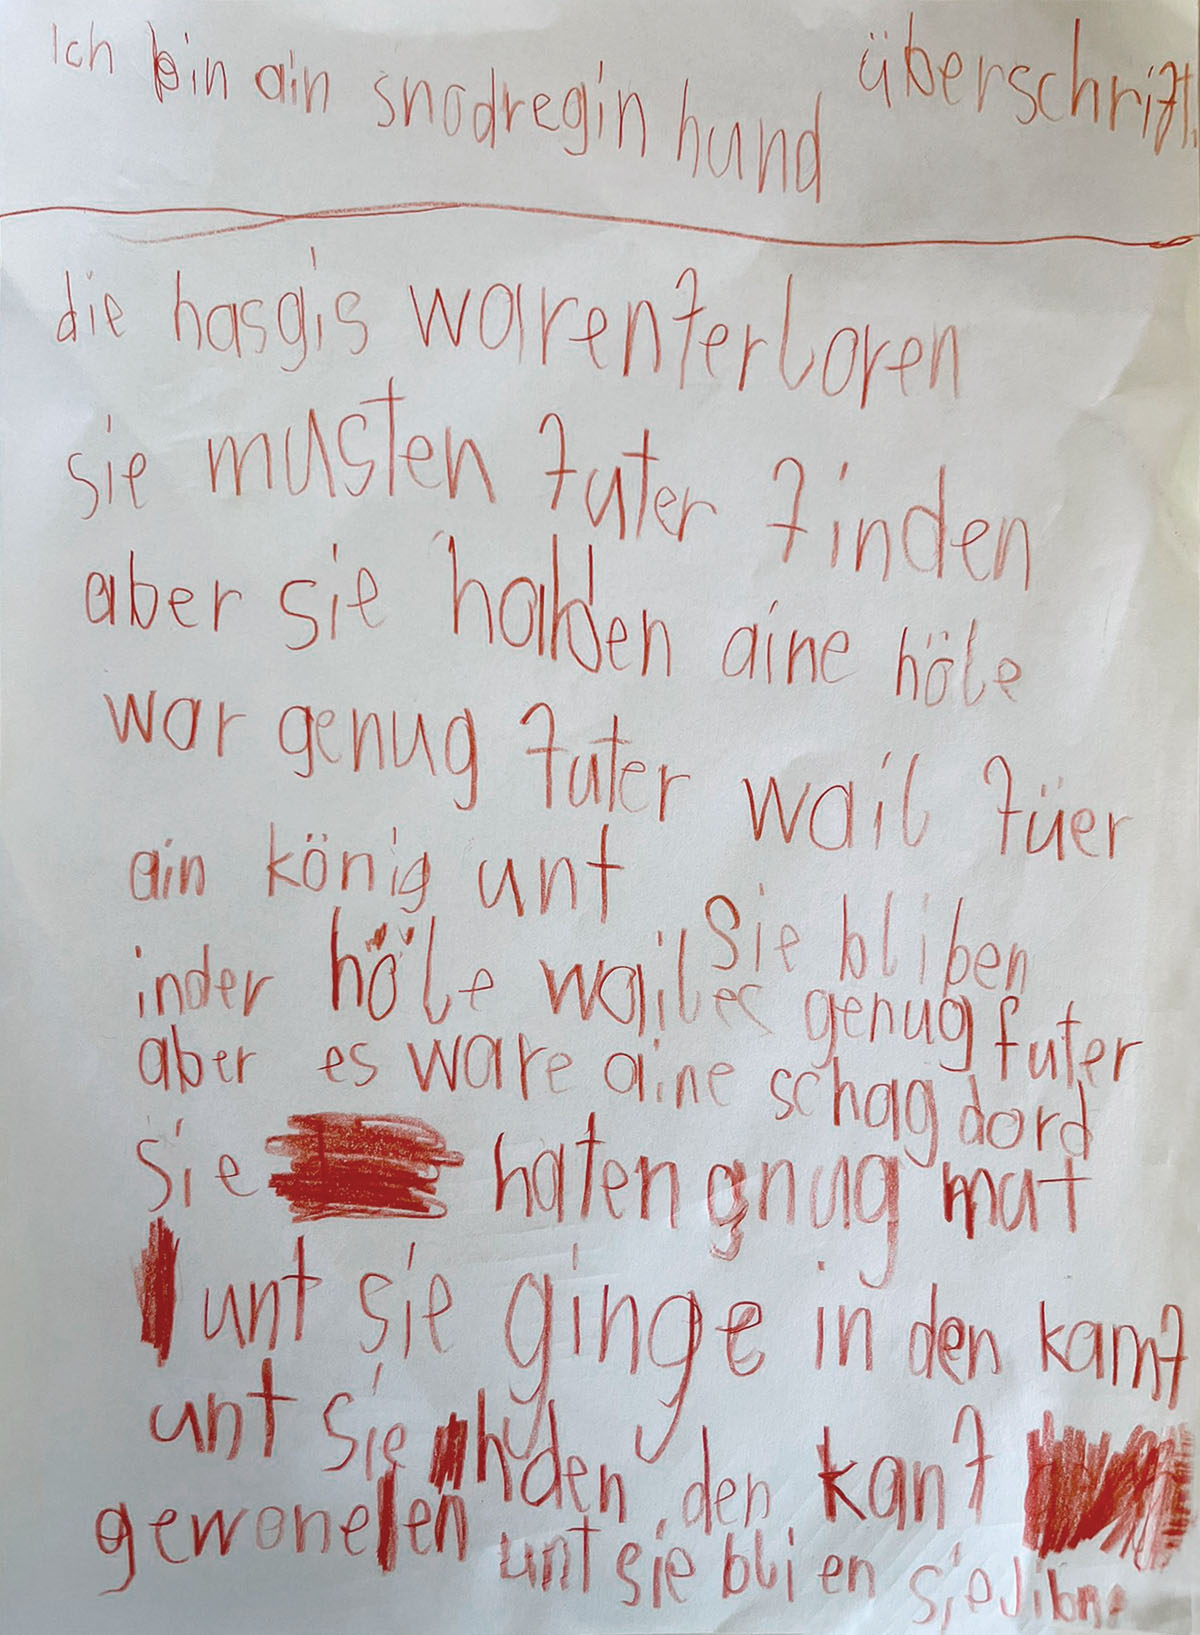 Ich bin ain snodregin hund
überschrift
die hasgis warenferloren
sie musten futer finden
aber sie halden aine höle
war genug futer wail füer
ain könig unt
Sie bliben
inder höle wailes genug futer
aber es ware aine schag dord
sie haten gnug mut
unt sie ginge in den kamf
unt sie den den kanf
gewonen unt sie bli en sie